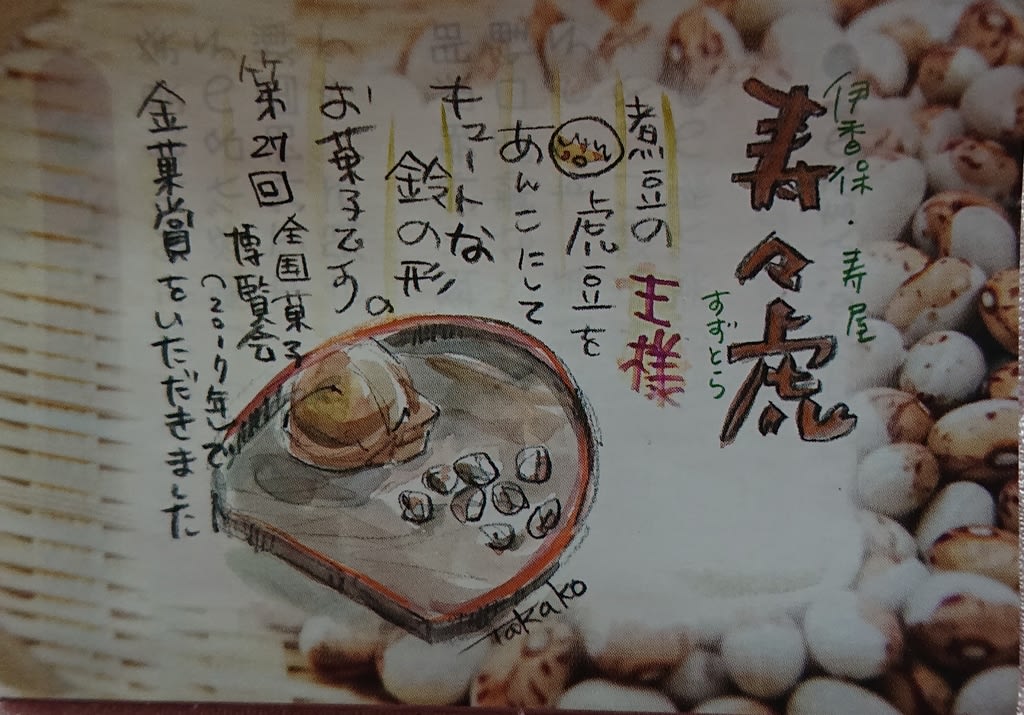 伊香保・寿屋
寿々虎
すずとら
煮豆の王様
虎豆を
あんこにして
キュートな
鈴の形の
お菓子です
第27回
全国菓子
博覧会
(2017年)で
金菓賞をいただきました
Takako